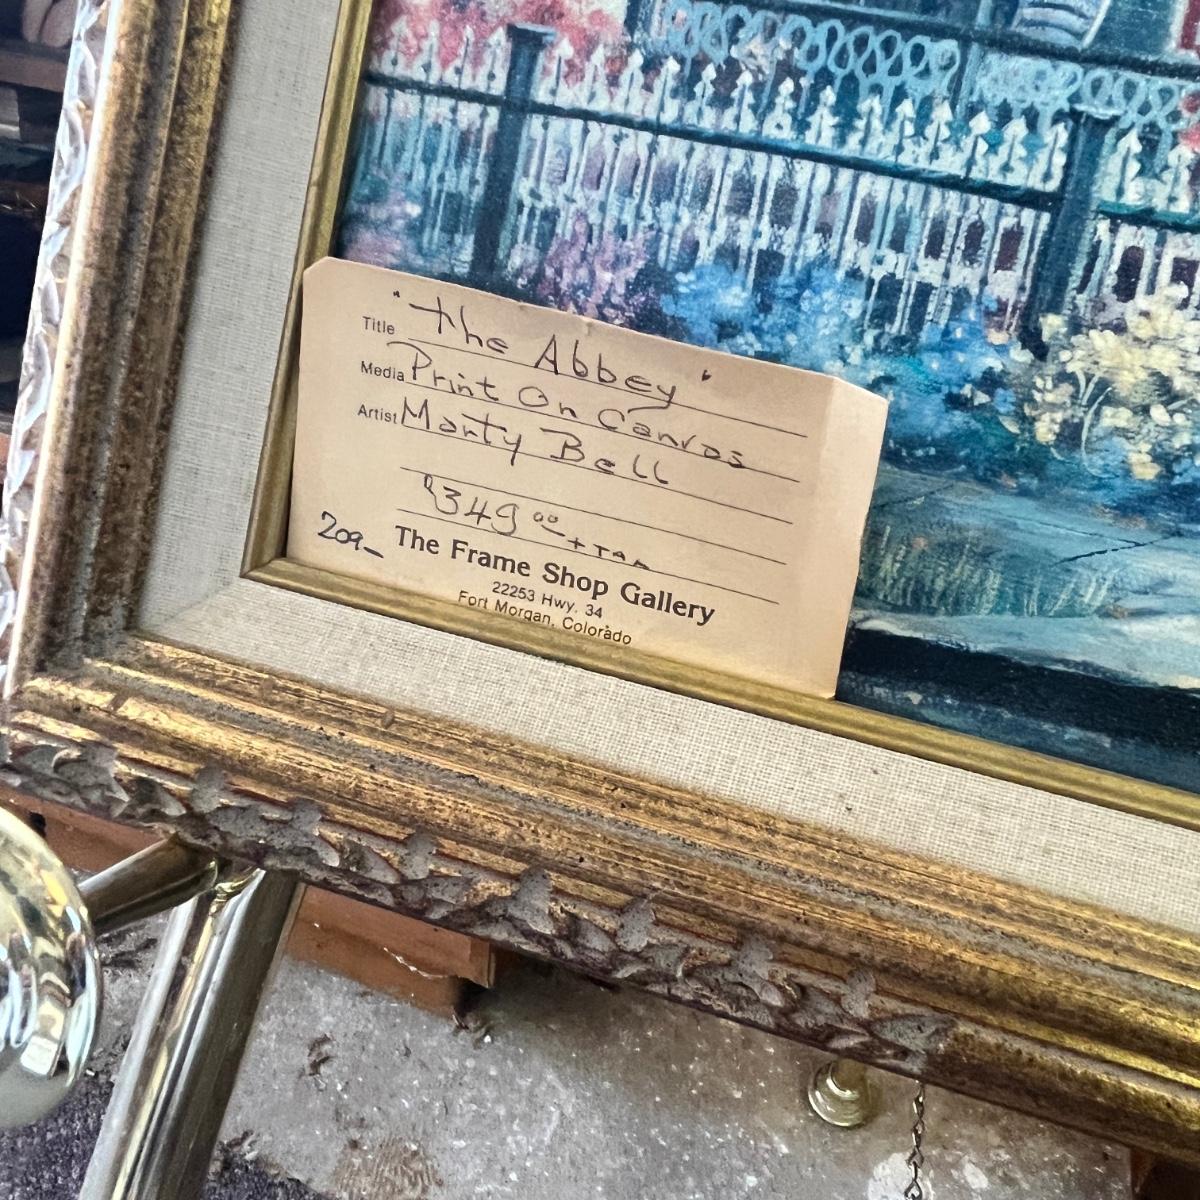 Title "The Abbey"
Media Print On Canvas
Artist Marty Bell
$349.00 + TAX
209-
The Frame Shop Gallery
22253 Hwy. 34
Fort Morgan, Colorado